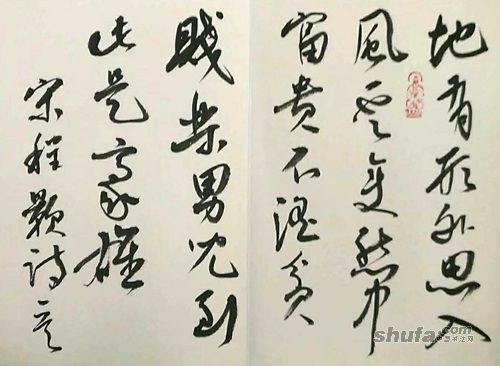 地有形外思入
風雲變態中
富貴不淫貧
賤樂男兒到
此是豪雄
宋程顥詩意
shufa.com